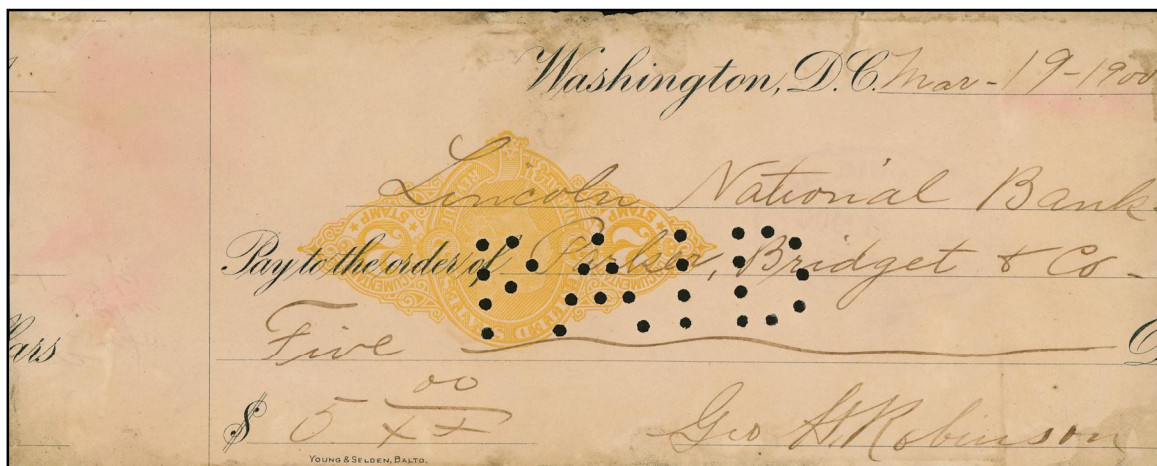 Washington, D.C. Mar-19-1900
Lincoln National Bank
Pay to the order of Parker, Bridget & Co-
Five
llars
$ 5 00/xx
Geo H. Robinson
YOUNG & SELDEN, BALTO.
STAMP
2
STAMP
2
PAID